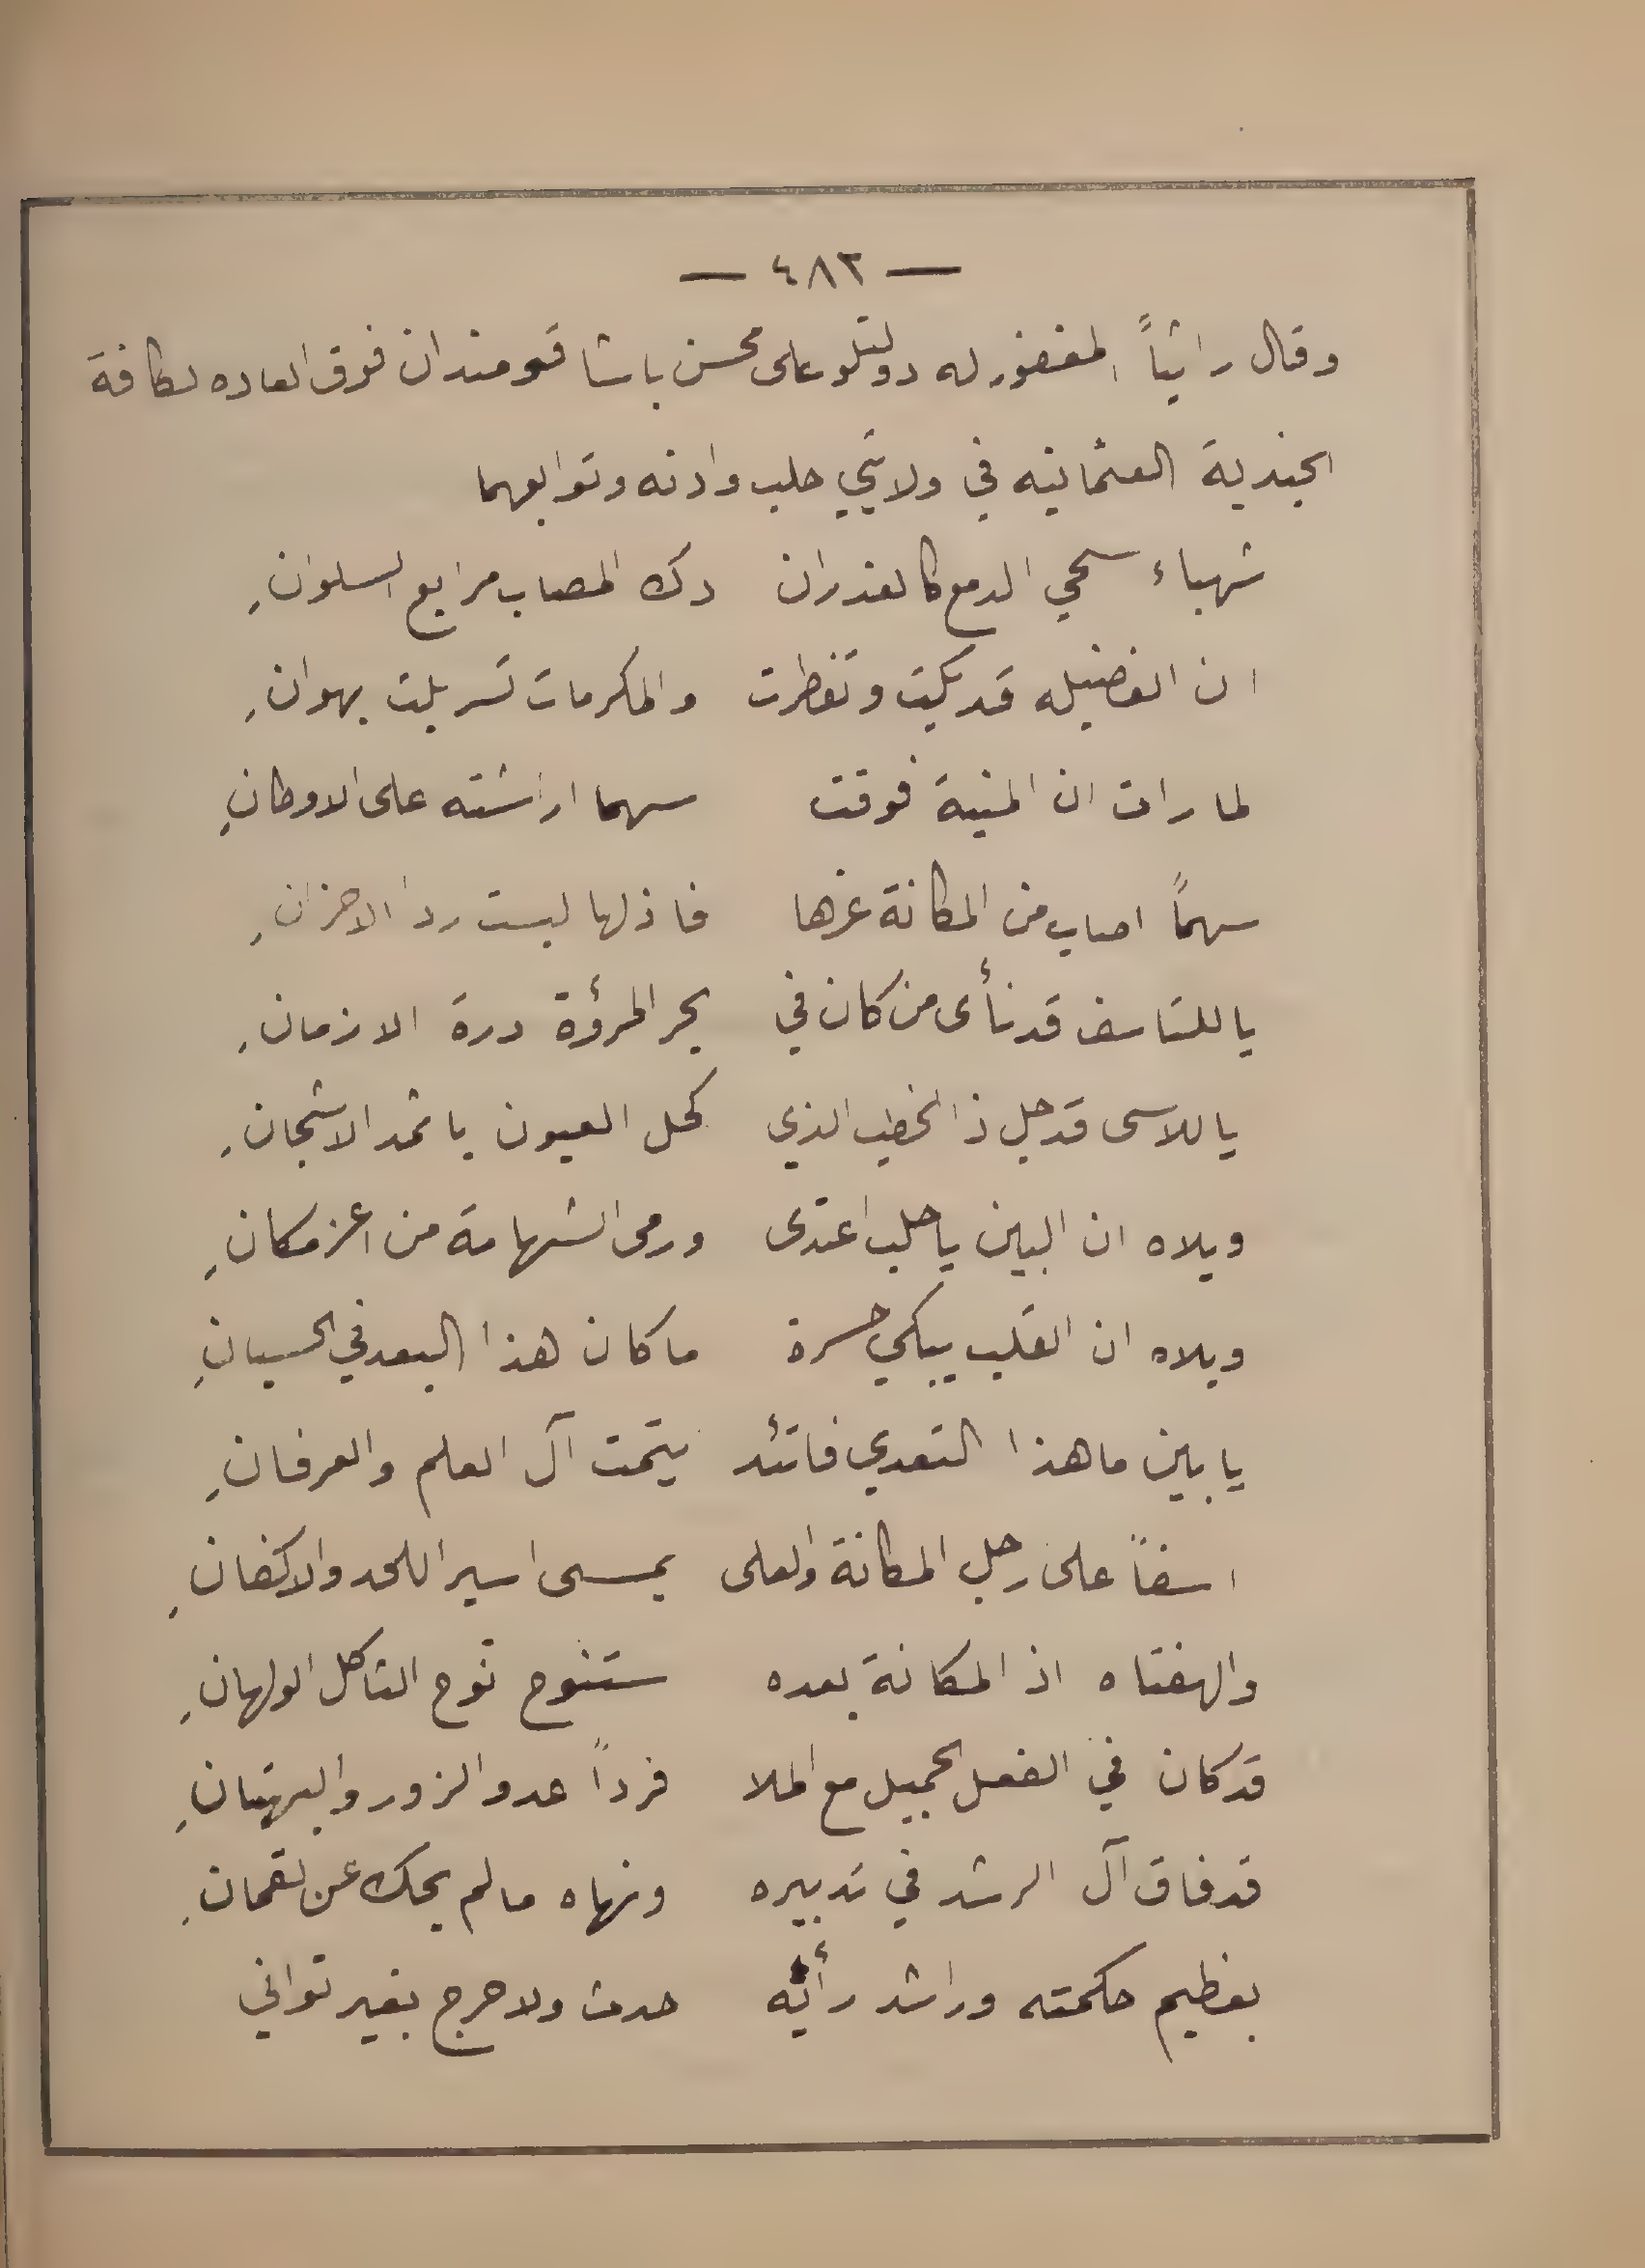 — ٤٨٣ —
وقال راثياً المغفور له دولتلو على محسن باشا قومندان فوق العاده لكافة
الجندية العثمانيه في ولايتي حلب وادنه وتوابعهما
شهباء سحي الدمع كالغدران دك المصاب مرابع السلوانِ
ان الفضيله قد بكيت وتفطرت والمكرمات تسربلت بهوانِ
لما رات ان المنية فوقت سهما اراشته على الاوطانِ
سهماً اصاب من المكانة عزها فاذلها لبست ردا الاحزانِ
يا للتاسف قد نأى من كان في بحر المرؤة درة الازمانِ
يا للاسى قد جل ذا الخطب الذي كحل العيون باثمد الاشجانِ
ويلاه ان البين يا حلب اعتدى ورمى الشهامة من اعز مكانِ
ويلاه ان القلب يبكي حسرة ما كان هذا البعد في الحسبانِ
يا بين ما هذا التعدي فاتئد يتمت آل العلم والعرفانِ
اسفاً على رجل المكانة والعلى يمسى اسير اللحد والاكفانِ
والهفتاه اذ المكانة بعده ستنوح نوح الثاكل الولهانِ
قد كان في الفعل الجميل مع الملا فرداً عدو الزور والبهتانِ
قد فاق آل الرشد في تدبيره ونهاه ما لم يحك عن لقمانِ
بعظيم حكمته وراشد رأيه حدث ولا حرج بغير تواني